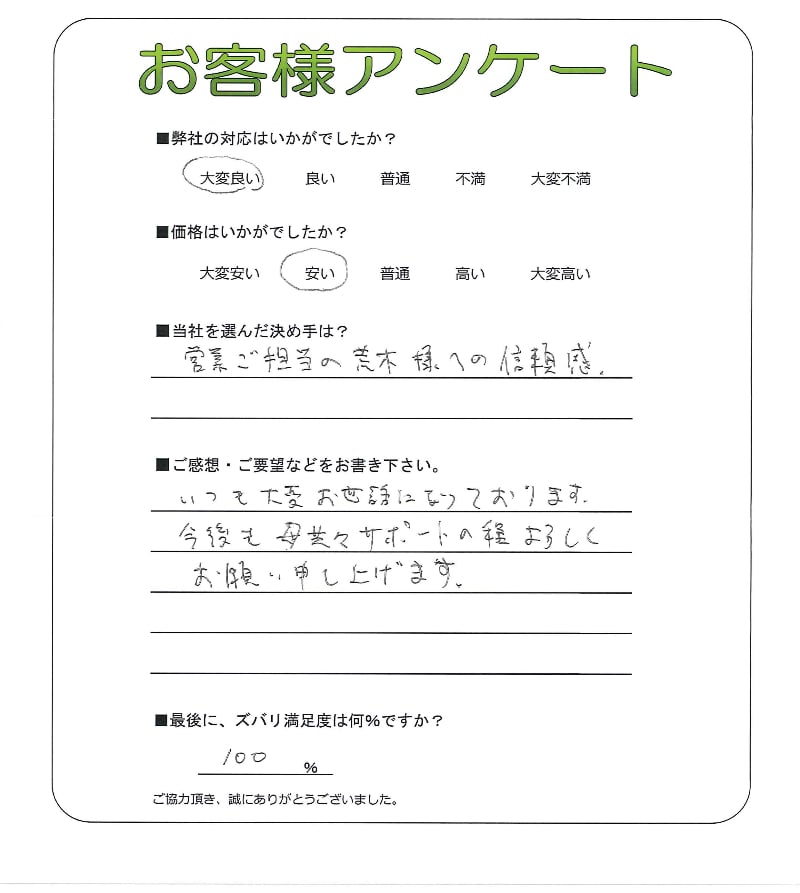 お客様アンケート
■弊社の対応はいかがでしたか？
大変良い 良い 普通 不満 大変不満
■価格はいかがでしたか？
大変安い 安い 普通 高い 大変高い
■当社を選んだ決め手は？
営業ご担当の荒木様への信頼感。
■ご感想・ご要望などをお書き下さい。
いつも大変お世話になっております。
今後も毎共々サポートの程よろしく
お願い申し上げます。
■最後に、ズバリ満足度は何%ですか？
100 %
ご協力頂き、誠にありがとうございました。